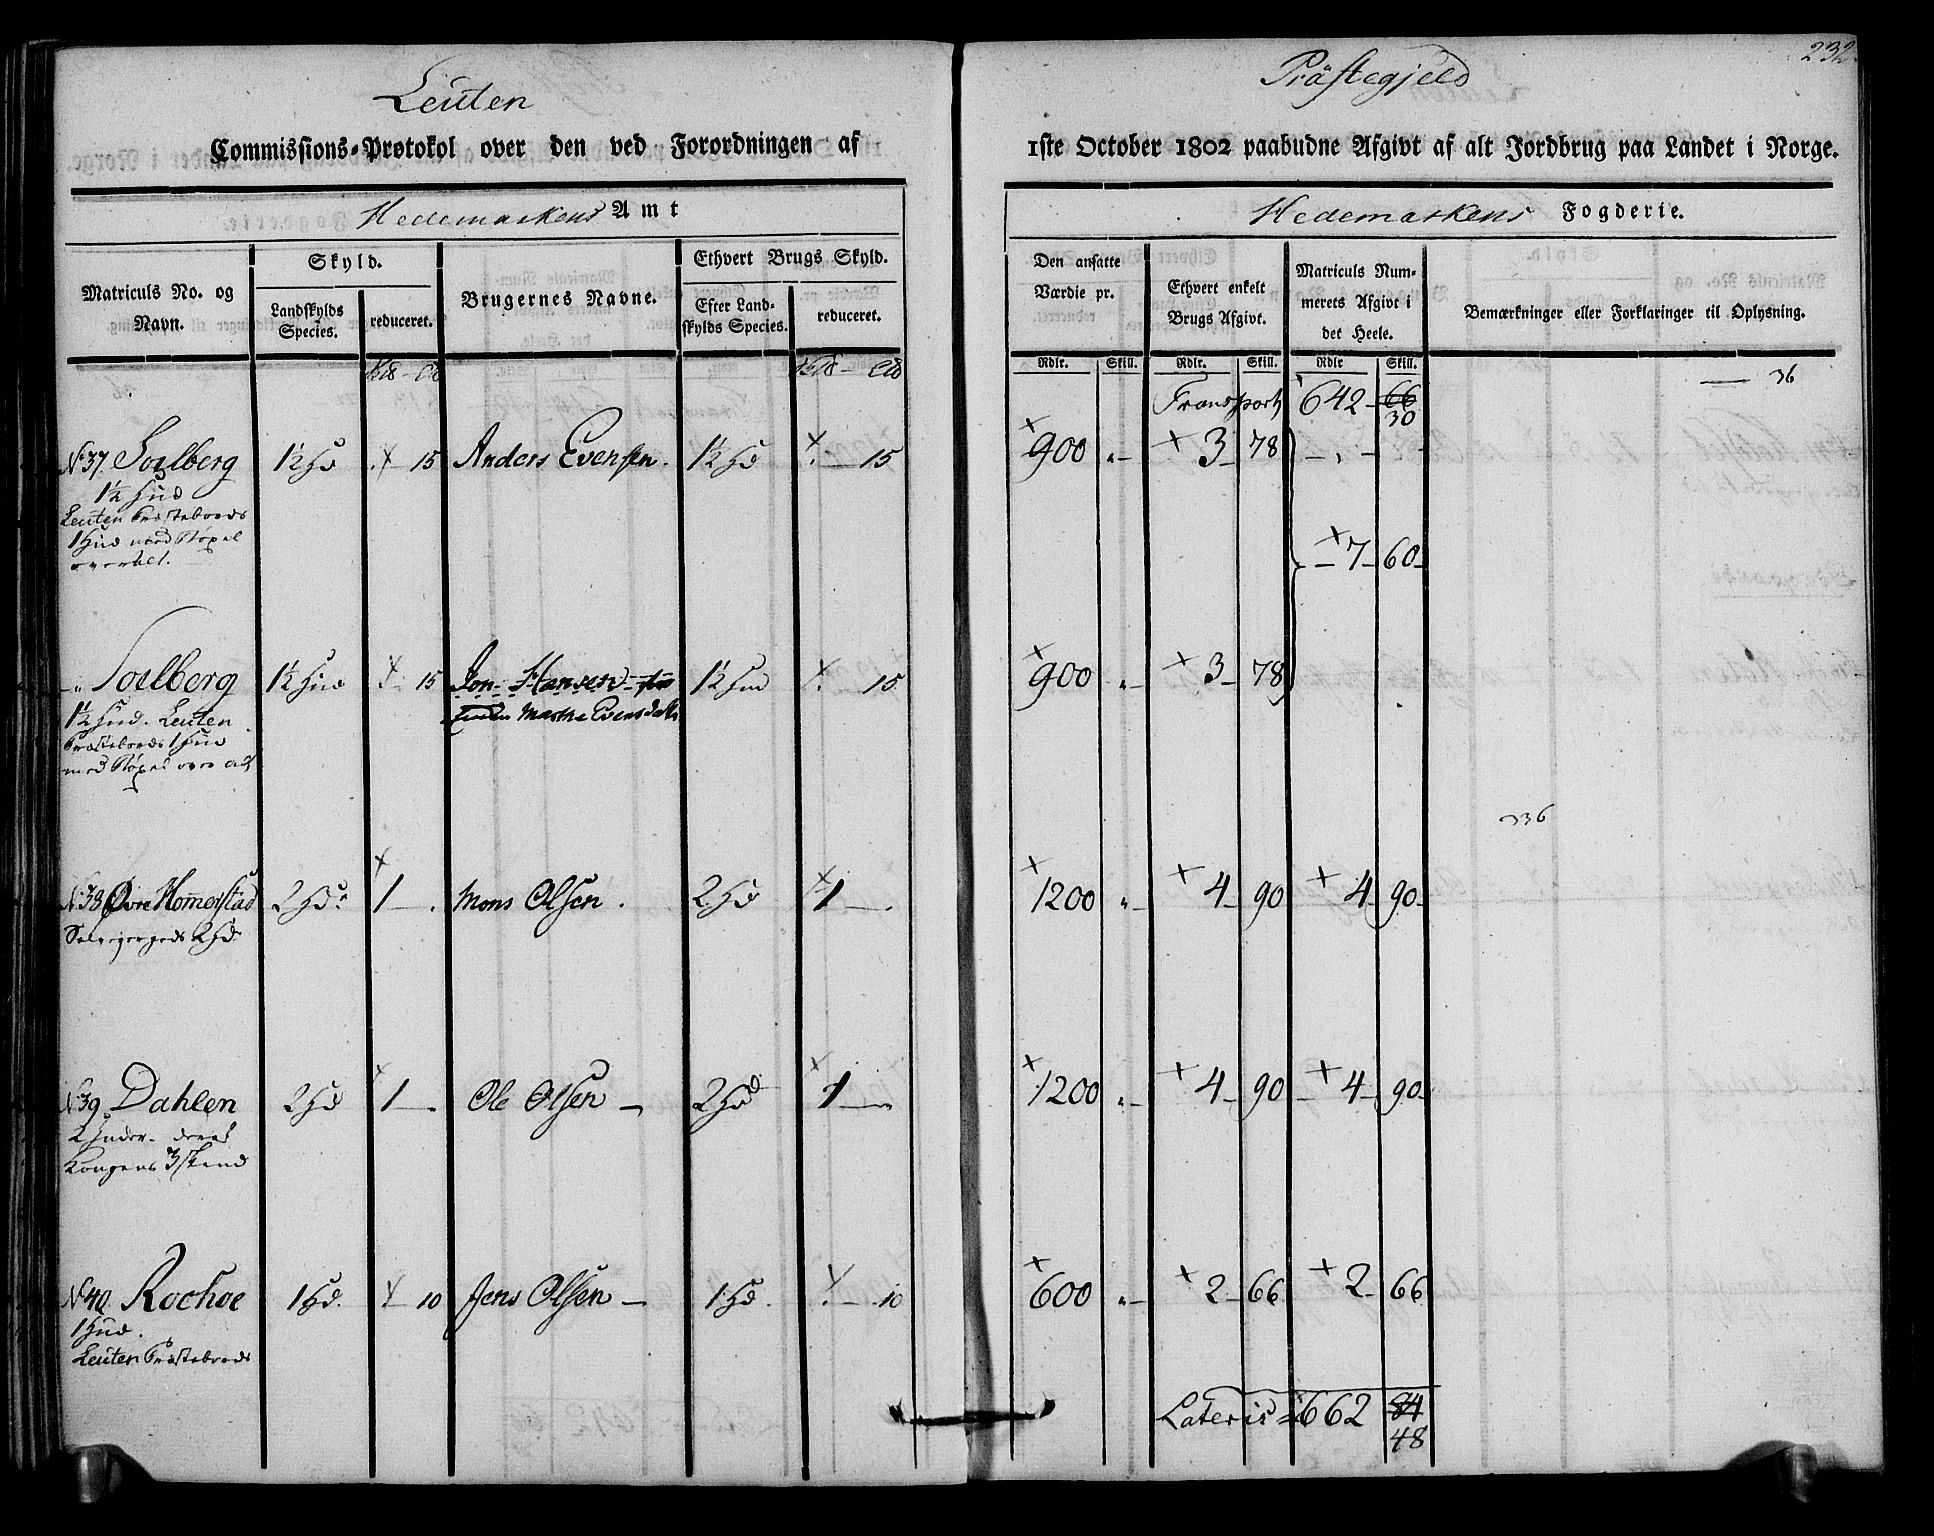 232
Leuten Præstegjeld
Commissions-Protokol over den ved Forordningen af 1ste October 1802 paabudne Afgivt af alt Jordbrug paa Landet i Norge.
Hedemarkens Amt
Hedemarkens Fogderie.
Matriculs No. og Navn.
Skyld.
Landskylds Species.
reduceret.
Brugernes Navne.
Ethvert Brugs Skyld.
Efter Landskylds Species.
reduceret.
Den ansatte Værdie pr.
Ethvert enkelt Brugs Afgivt.
Matriculs Nummerets Afgivt i det Heele.
Bemærkninger eller Forklaringer til Oplysning.
Rdlr. Skill. Rdlr. Skill. Rdlr Skill.
Transport 642 66 — 36
30
No 37 Soelberg 1½ Hd 15 Anders Evensen. 1½ Hd 15 900 „ 3 78
1½ Hud
Leuten Præstebords
1 Hud med
7 60
„ Soelberg 1½ Hud 15 Jon Hansen 1½ Hud 15 900 „ 3 78
Marthe Evensdatter
1½ Hud. Leuten
Præstebords 1 Hud
med
336
No 38 Øvre Hommerstad 2 Hd. 1 Mons Olsen. 2 Hd 1 1200 „ 4 90 4 90
Selvejergods 2 Hd
No 39. Dahlen 2 Hd 1 Ole Olsen 2 Hd 1 1200 „ 4 90 4 90
2 Huder
Kongens 3 skind
No 40. Rochoe 1 Hd. 10 Jens Olsen 1 Hd. 10 600 „ 2 66 2 66
1 Hud.
Leuten Præstebords
Lateris 662 84
48